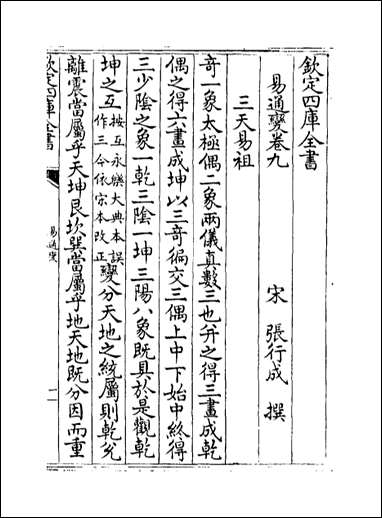 欽定四庫全書
易通變卷九
宋 張行成 撰
三天易祖
奇一象太極偶二象兩儀真數三也并之得三畫成乾
偶之得六畫成坤以三奇徧交三偶上中下始中終得
三少陰之象一乾三陰一坤三陽八象既具於是觀乾
坤之互按互永樂大典本誤作三今依宋本改正變分天地之統屬則乾兌
離震當屬乎天坤艮坎巽當屬乎地天地既分因而重
欽定四庫全書
易通變